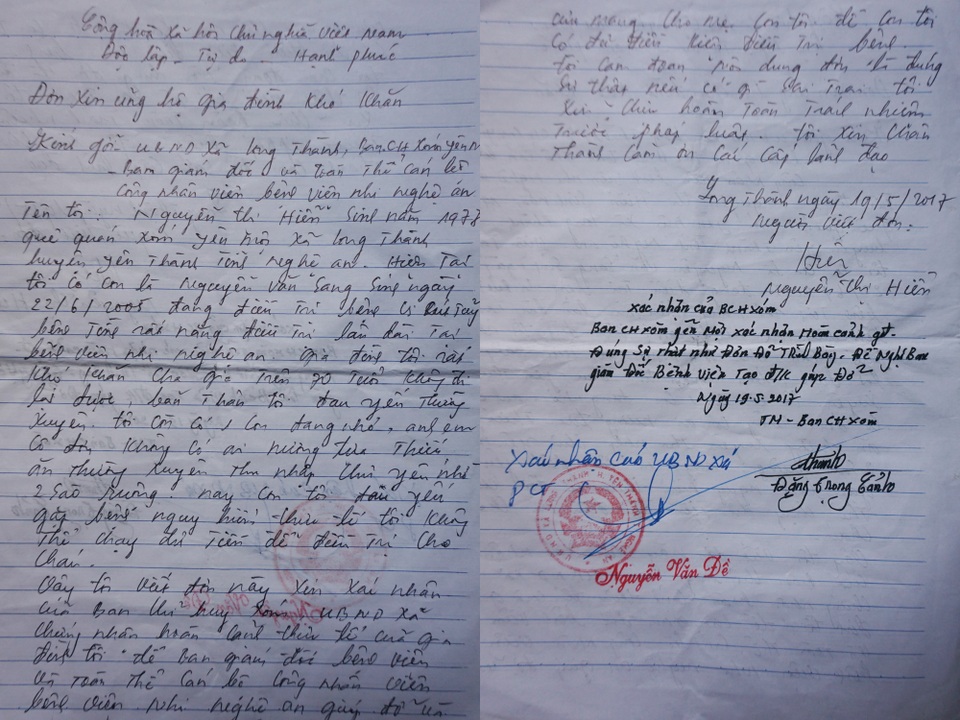 Cộng hoà xã hội chủ nghĩa Việt Nam
Độc lập - Tự do - Hạnh phúc
Đơn xin ủng hộ gia đình khó khăn
Kính gửi UBND xã Long Thành, Ban CH xóm Yên M
- Ban giám đốc và toàn thể cán bộ
công nhân viên bệnh viện nhi nghệ an
Tên tôi: Nguyễn thị Hiền Sinh năm 1977
quê quán xóm yên mới xã long Thành
huyện yên Thành Tỉnh nghệ an. Hiện Tại
tôi có con là Nguyễn văn Sang Sinh ngày
22/6/2005 đang điều Trị bệnh
bệnh Tình rất nặng điều Trị lâu dài Tại
bệnh viện nhi nghệ an gia đình tôi rất
khó khăn cha già trên 70 tuổi không đi
lại được, bản Thân tôi đau yếu Thường
xuyên. tôi còn có 1 con đang nhỏ, anh em
cô đơn không có ai nương tựa Thiếu
ăn thường xuyên thu nhập chủ yếu nhờ
2 Sào ruộng. nay con tôi đau yếu
gặp bệnh nguy hiểm thực tế tôi không
thể chạy đủ tiền để điều Trị cho
cháu.
Vậy tôi viết đơn này xin xác nhận
của Ban chỉ huy xóm, UBND xã
chứng nhận hoàn cảnh thực tế của gia
đình tôi để ban giám đốc bệnh viện
và toàn thể cán bộ công nhân viên
bệnh viện nhi nghệ an giúp đỡ và
cưu mang cho mẹ con tôi để con tôi
có đủ điều kiện điều Trị bệnh.
tôi cam đoan nội dung đơn là đúng
Sự thật nếu có gì Sai Trái tôi
xin chịu hoàn toàn trách nhiệm
trước pháp luật. tôi xin chân
thành cảm ơn các cấp lãnh đạo
Long Thành ngày 19/5/2017
Người viết đơn:
Hiền
Nguyễn Thị Hiền
Xác nhận của BCH xóm
Ban CH xóm yên Mới xác nhận Hoàn cảnh gđ
Đúng Sự thật như Đơn Đã Trình Bày. Đề Nghị Ban
giám đốc Bệnh Viện Tạo đ/k giúp Đỡ
Ngày 19.5.2017
TM - Ban CH xóm
Đặng Trọng Cảnh
Xác nhận của UBND xã
PCT
Nguyễn Văn Đề